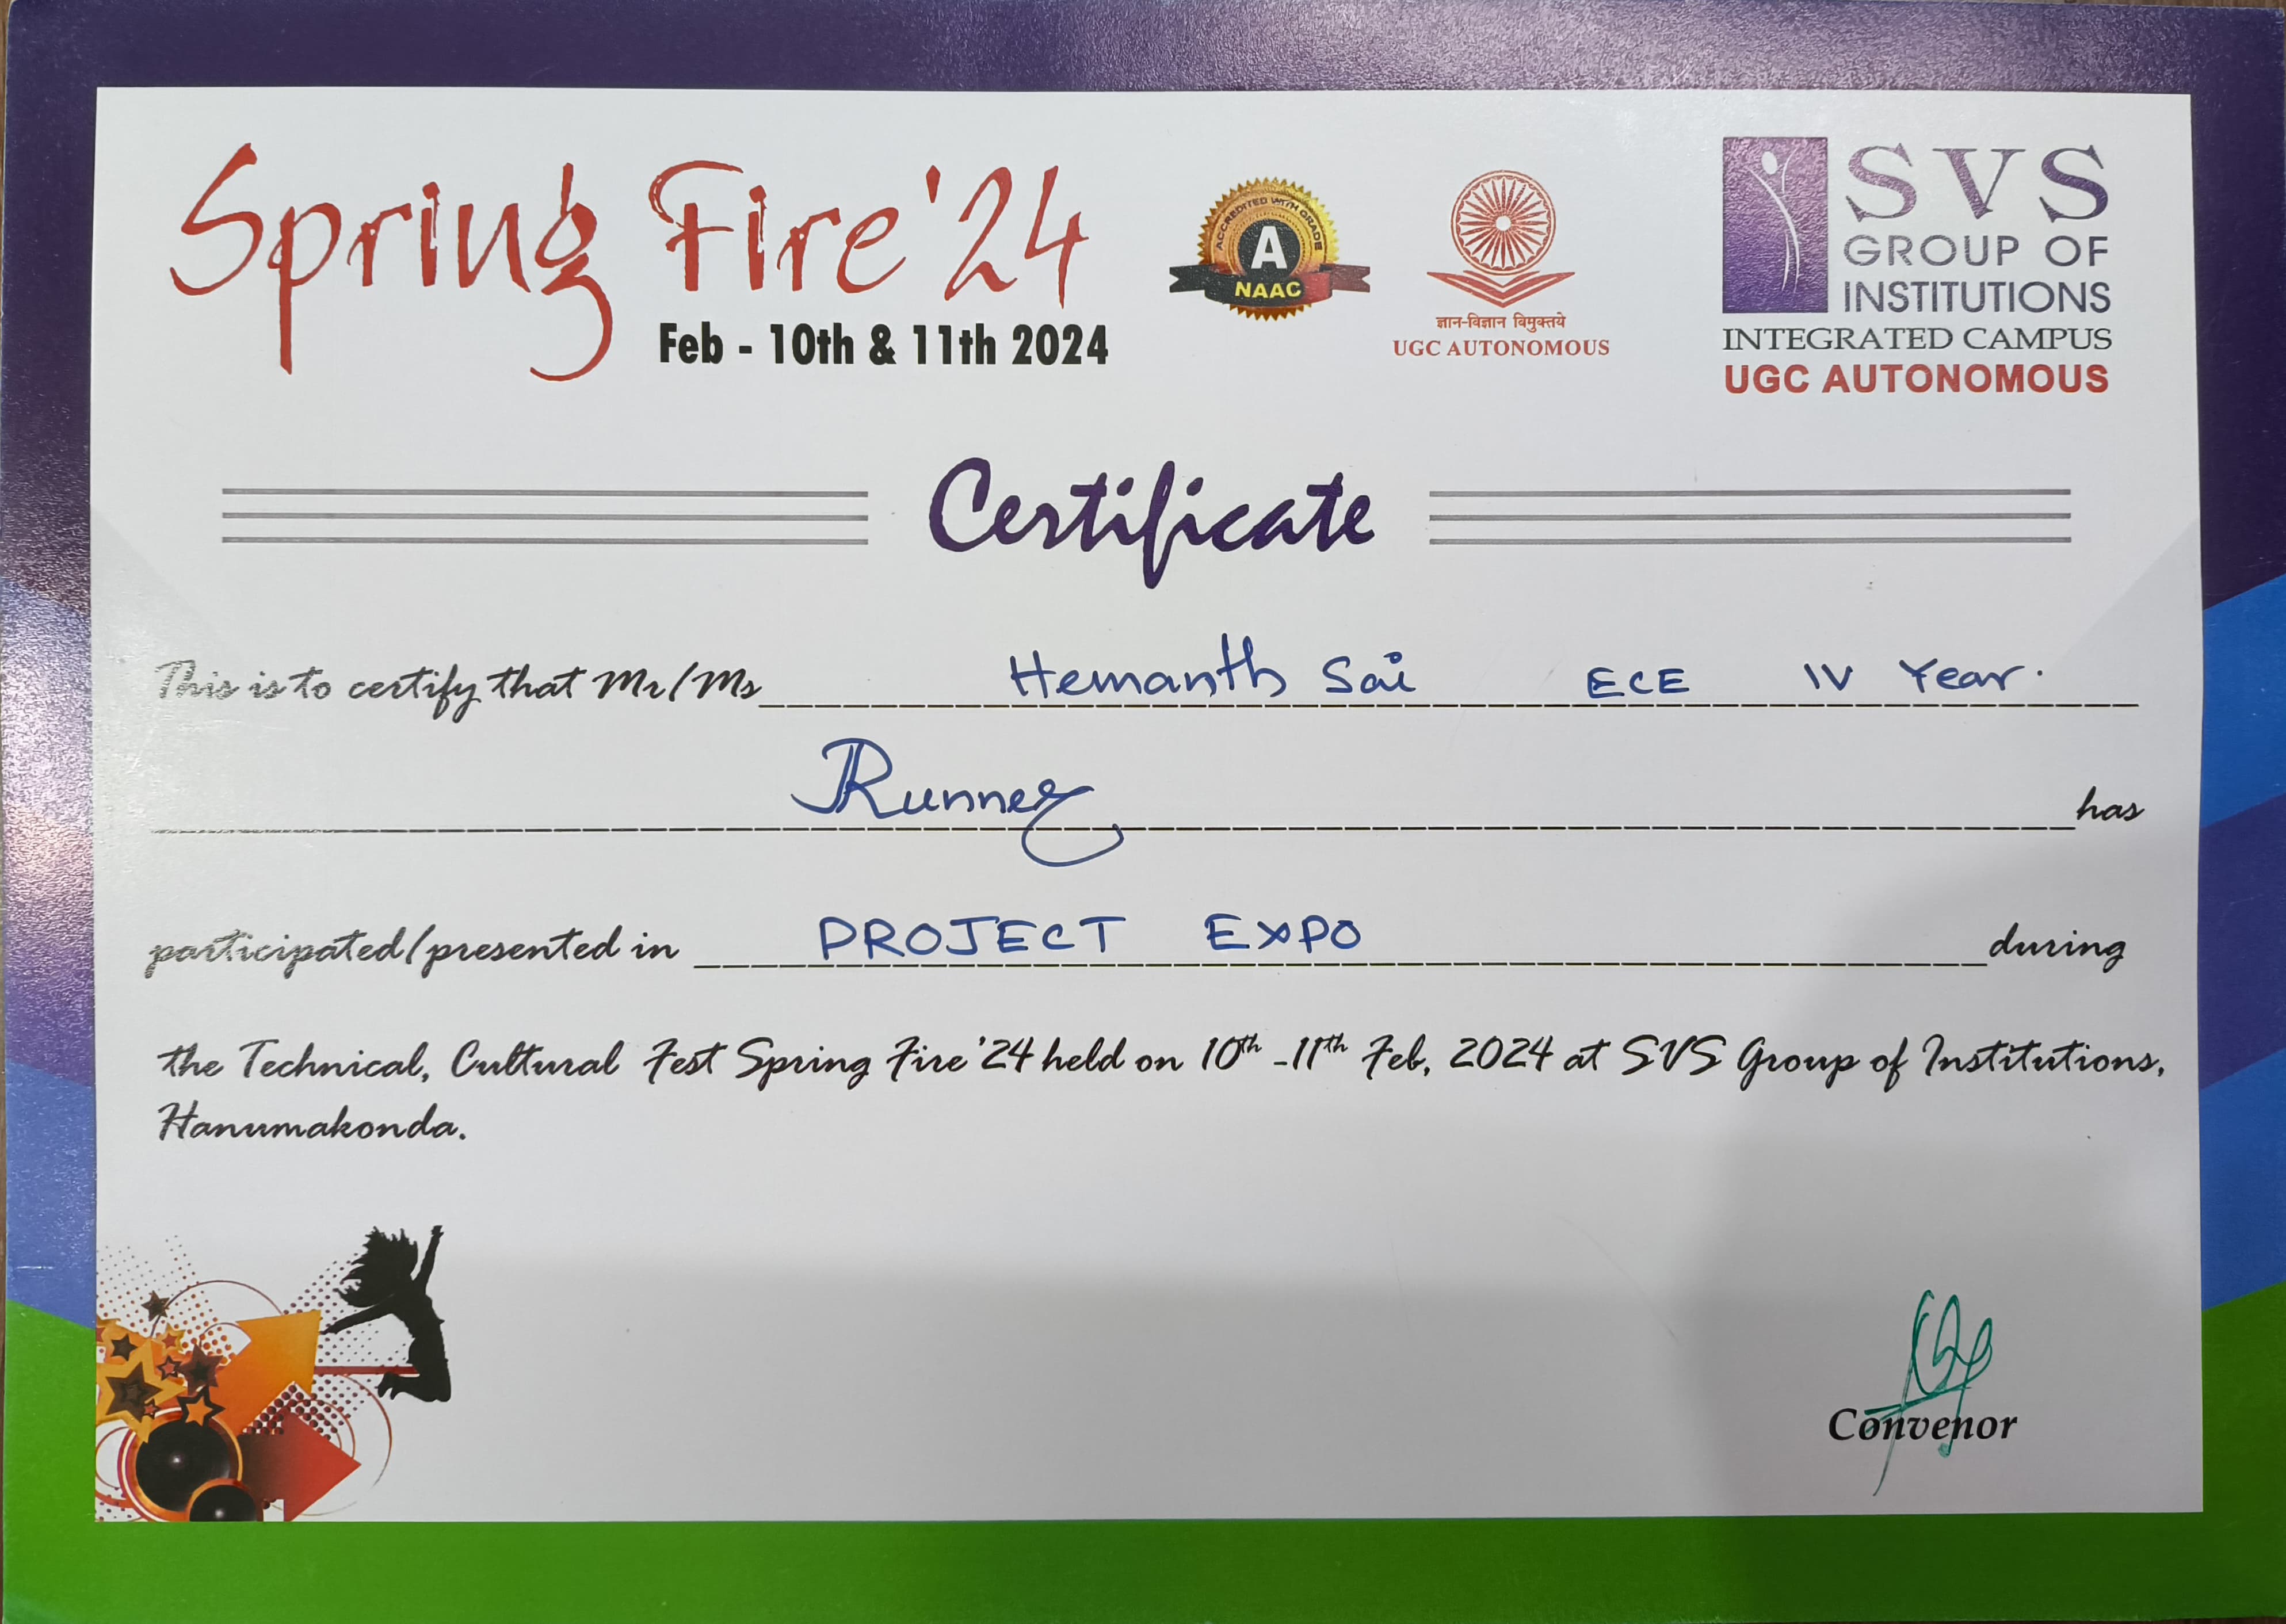 Spring Fire'24
Feb - 10th & 11th 2024
ACCREDITED WITH GRADE
A
NAAC
ज्ञान-विज्ञान विमुक्तये
UGC AUTONOMOUS
SVS
GROUP OF
INSTITUTIONS
INTEGRATED CAMPUS
UGC AUTONOMOUS
Certificate
This is to certify that Mr/Ms Hemanth Sai ECE IV Year.
Runner has
participated/presented in PROJECT EXPO during
the Technical, Cultural Fest Spring Fire'24 held on 10th -11th Feb, 2024 at SVS Group of Institutions,
Hanumakonda.
Convenor